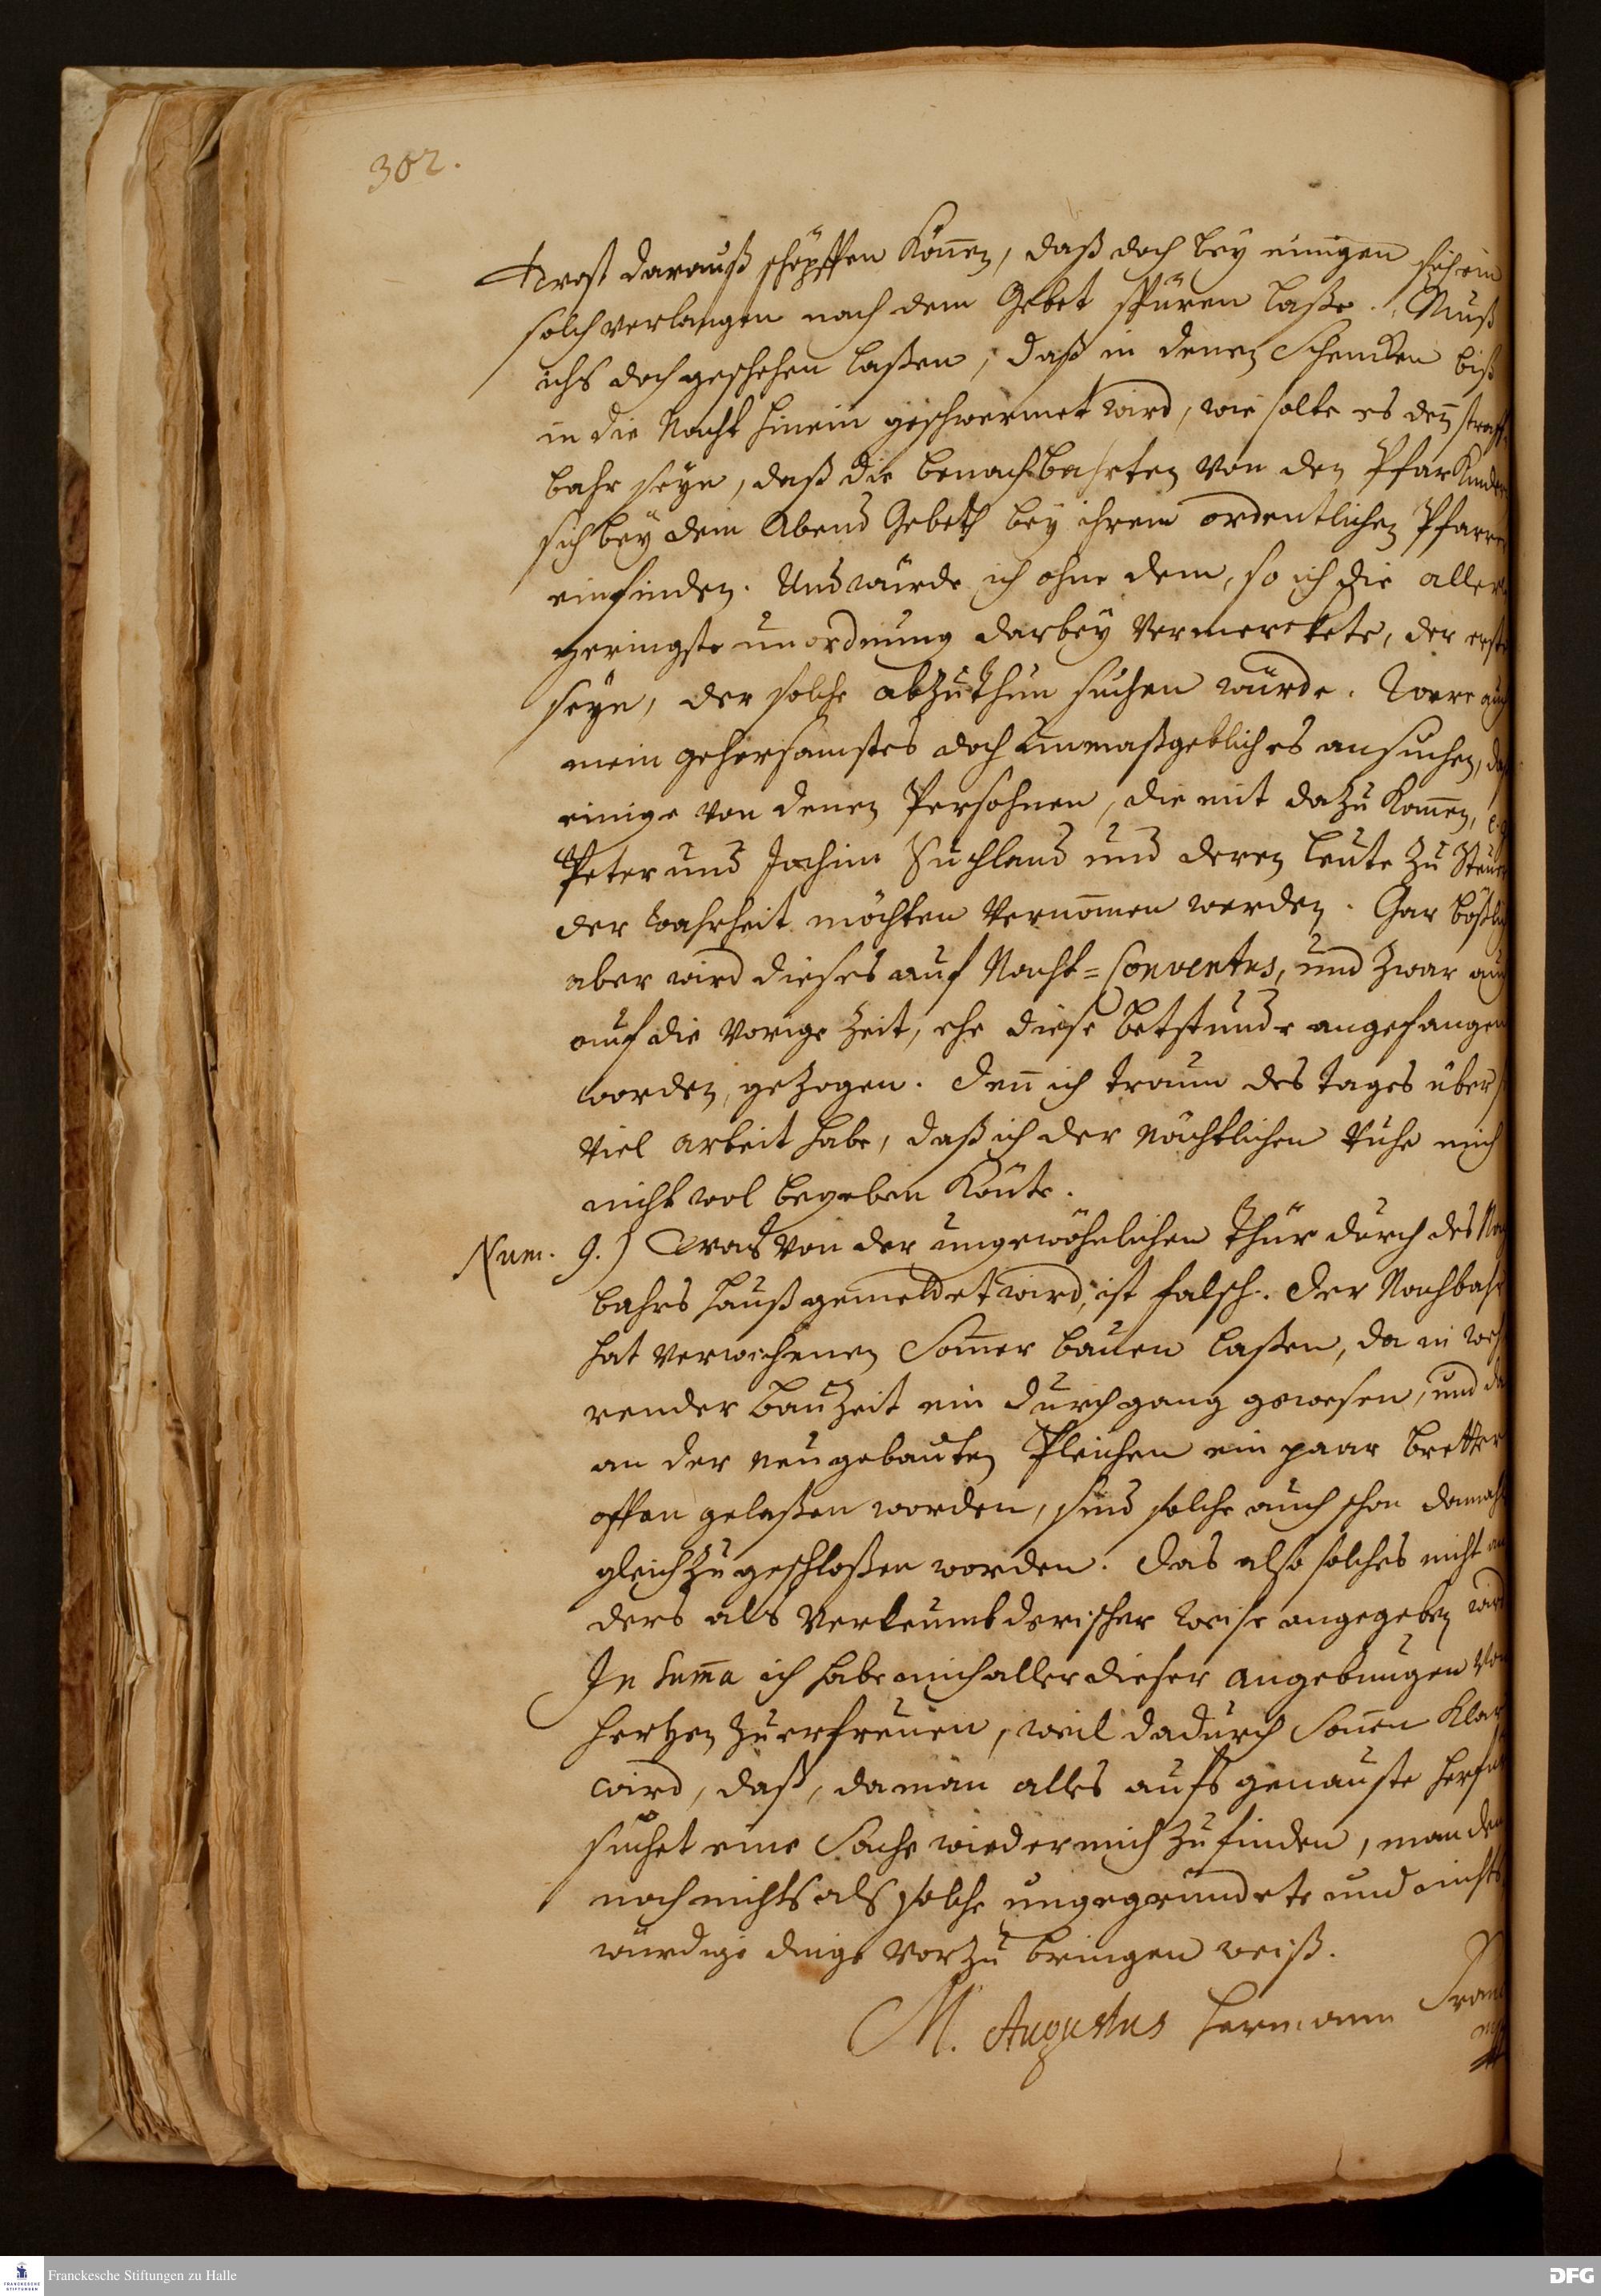 302.
Trost darauß schöpffen könen, daß doch bey einigen sich ein
solch verlangen nach dem Gebet spüren laße. Muß
ichs doch geschehen laßen, daß in denen Schencken biß
in die Nacht hinein geschwermet wird, wie solte es deñ straff
bahr seyn, daß die benachbahrten von den Pfarkinder
sich bey dem Abend Gebeth bey ihrem ordentlichen Pfarrer
einfinden. Und würde ich ohne dem, so ich die aller
geringste unordnung darbey vermerckete, der erste
seyn, der solche abzuthun suchen würde. Were auch
mein gehorsamstes doch unmaßgebliches ansuchen, daß
einige von denen Persohnen, die mit dazu kom̄en, e.g.
Peter und Jochim Suchland und deren leute zu Steuer
der wahrheit möchten vernom̄en werden. Gar boßlich
aber wird dieses auf Nacht=Conventus, und zwar auch
auf die vorige zeit, ehe diese betstunde angefangen
worden, gezogen. Deñ ich traun des tages über so
viel arbeit habe, daß ich der nächtlichen ruhe mich
nicht wol begeben könte.
Num. 9.) Was von der ungewöhnlichen thür durch des Nach
bahrs hauß gemeldet wird, ist falsch. Der Nachbahr
hat verwichenen Som̄er bauen laßen, da in weh
render bauzeit ein durchgang gewesen, und da
an der neugebauten Pleichen ein paar bretter
offen gelaßen worden, sind solche auch schon damahls
gleich zugeschloßen worden. Das also solches nicht an
ders als verleumbderischer weise angegeben wird
In Sum̄a ich habe mich aller dieser angebungen von
hertzen zu erfreuen, weil dadurch Son̄en klar
wird, daß, da man alles aufs genauste herfür
suchet eine Sache wieder mich zu finden, man den
noch nichts als solche ungegründete und nichts
würdige dinge vorzubringen weiß.
M. Augustus Hermann Franc
Franckesche Stiftungen zu Halle
FRANCKESCHE STIFTUNGEN
DFG